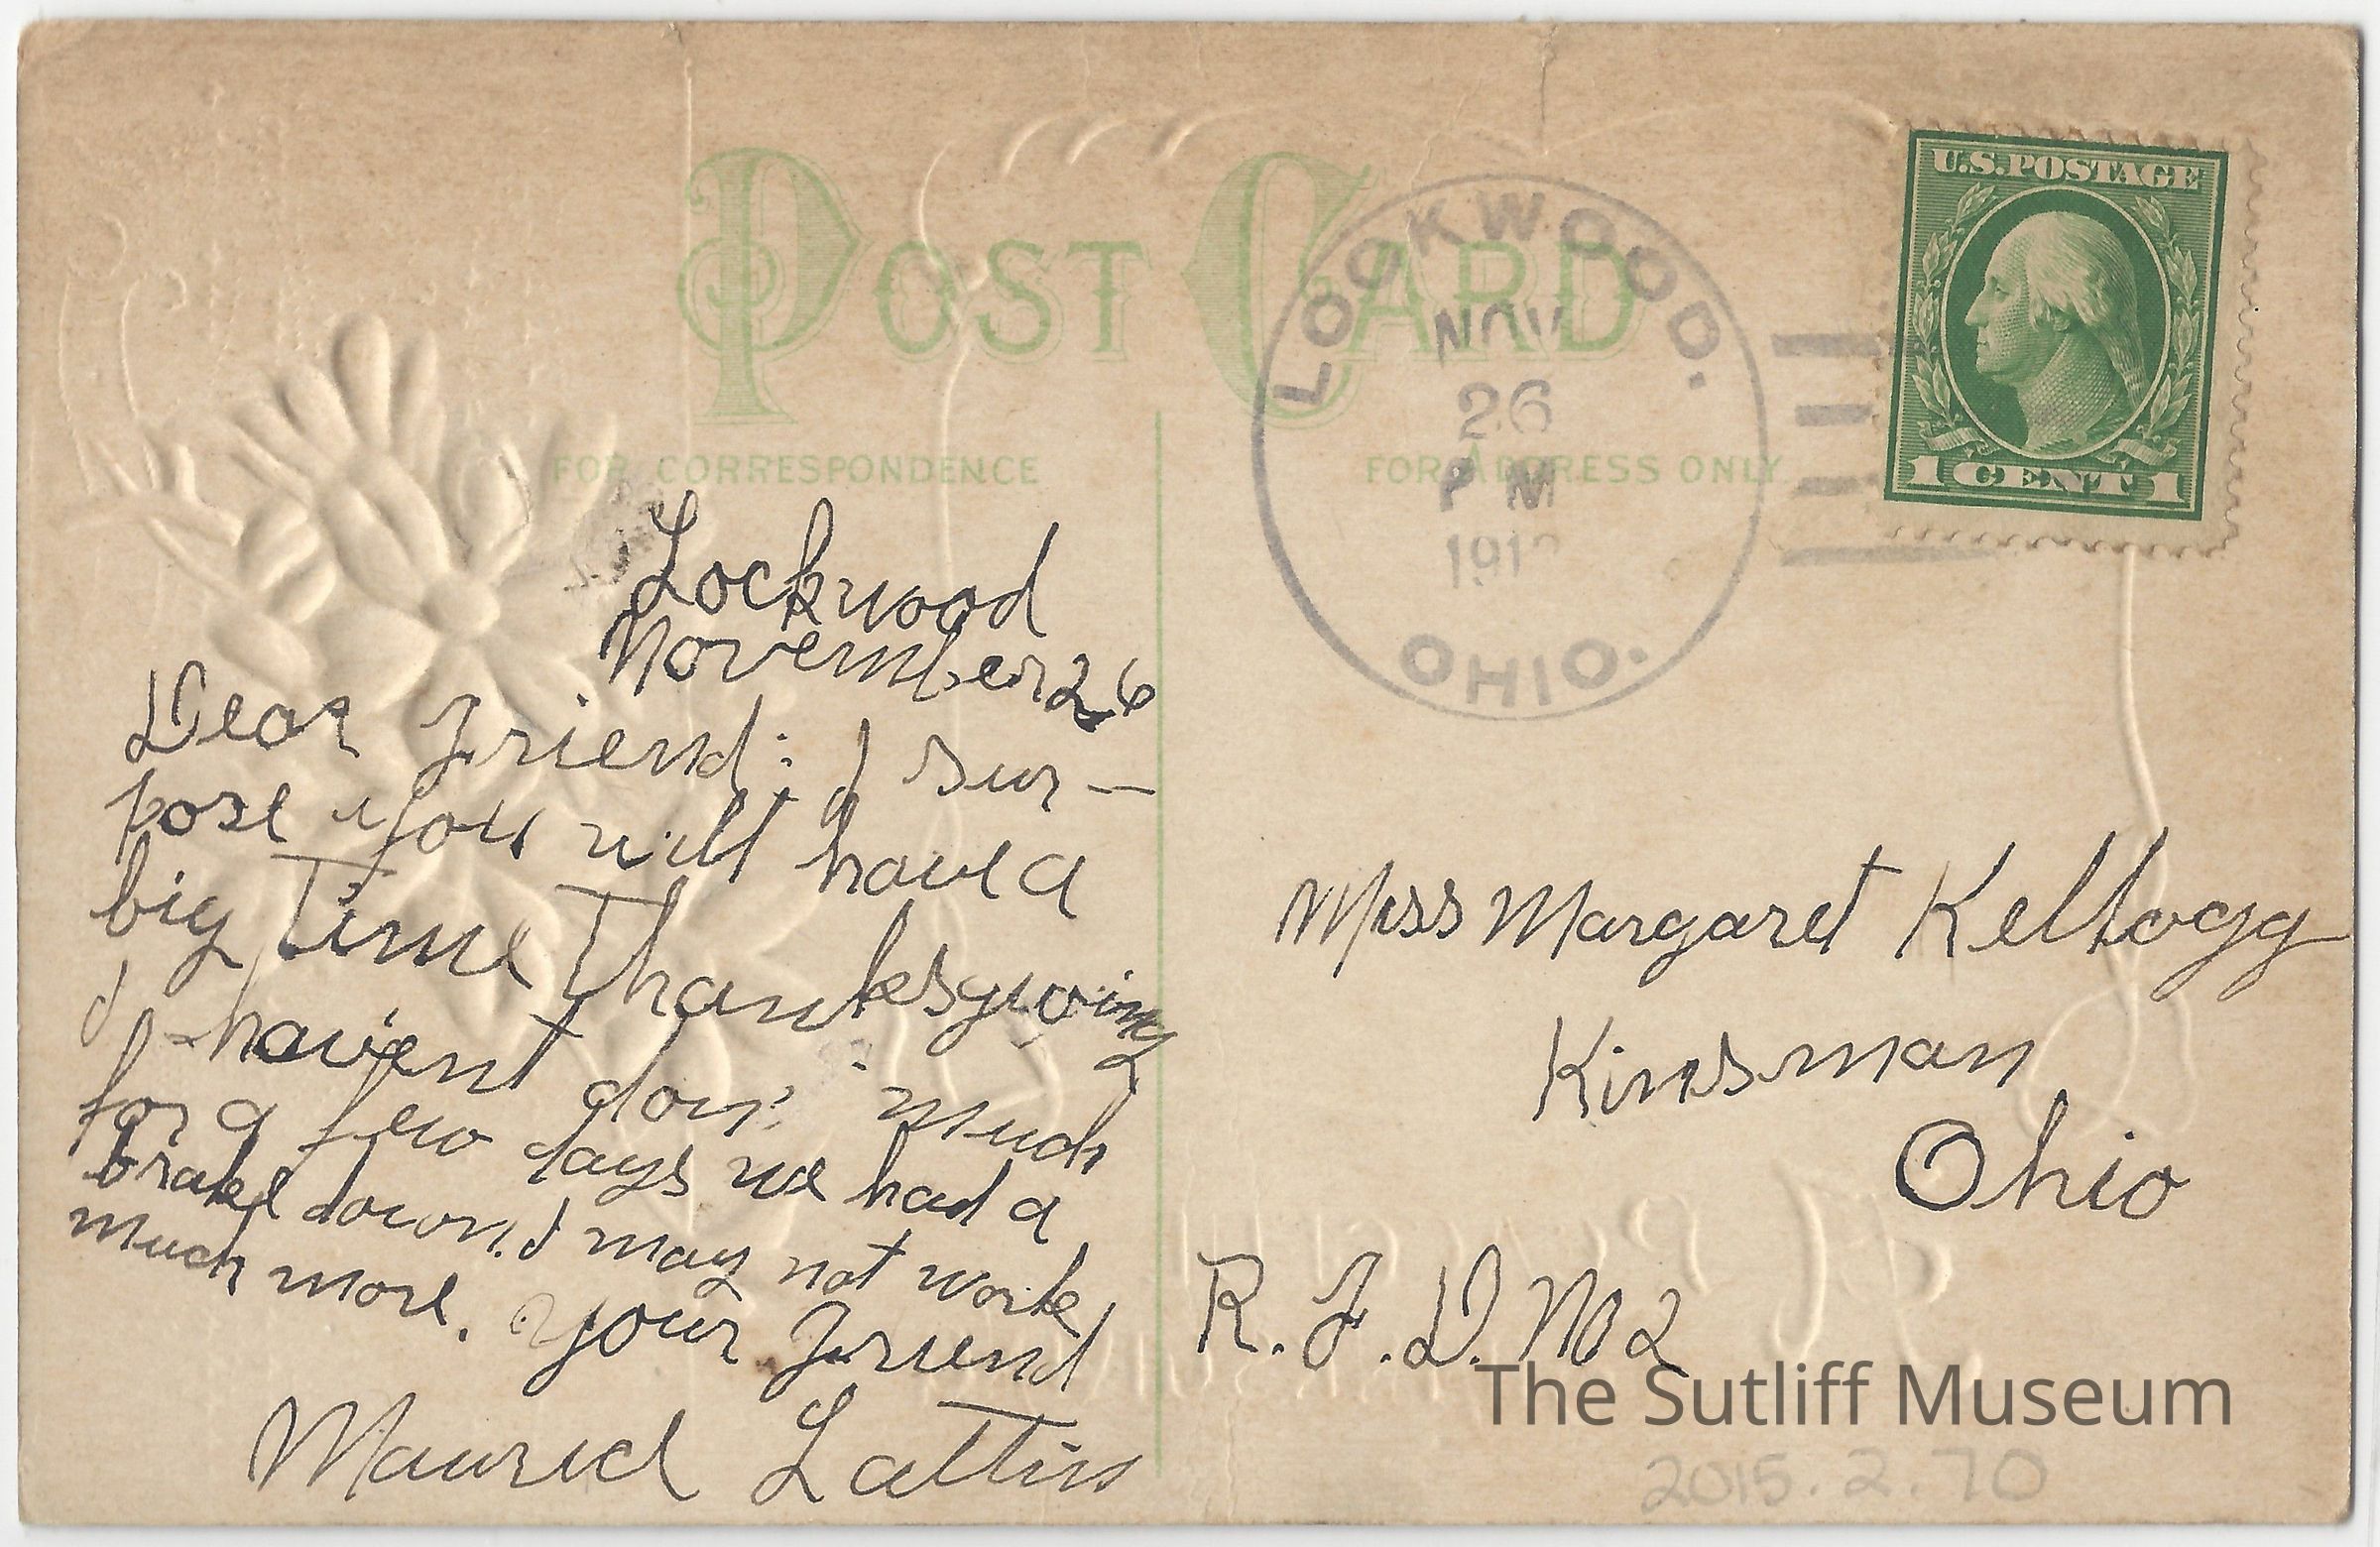 POST CARD
FOR CORRESPONDENCE
FOR ADDRESS ONLY
LOCKWOOD.
NOV
26
PM
OHIO.
U.S. POSTAGE
1 CENT 1
Lockwood
November 26
Dear Friend: I sur-
pose you will have a
big Time Thanksgiving
I haven't done much
for a few days we had a
brake down. I may not work
much more. Your Friend
Maurice Lattin
Miss Margaret Kellogg
Kinsman
Ohio
R. F. D. No 2
The Sutliff Museum
2015.2.70